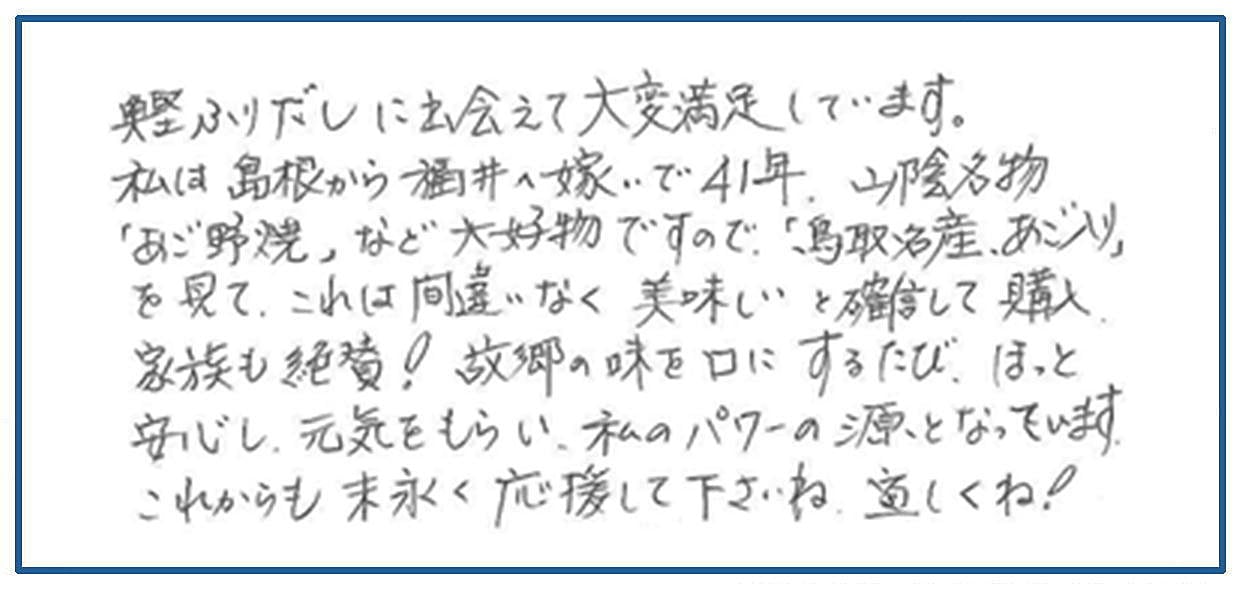 鰹ふりだしに出会えて大変満足しています。
私は島根から福井へ嫁いで41年、山陰名物
「あご野焼」など大好物ですので、「鳥取名産、あご入り」
を見て、これは間違いなく美味しいと確信して購入、
家族も絶賛!故郷の味を口にするたび、ほっと
安心し、元気をもらい、私のパワーの源、となっています。
これからも末永く応援して下さいね、宜しくね!